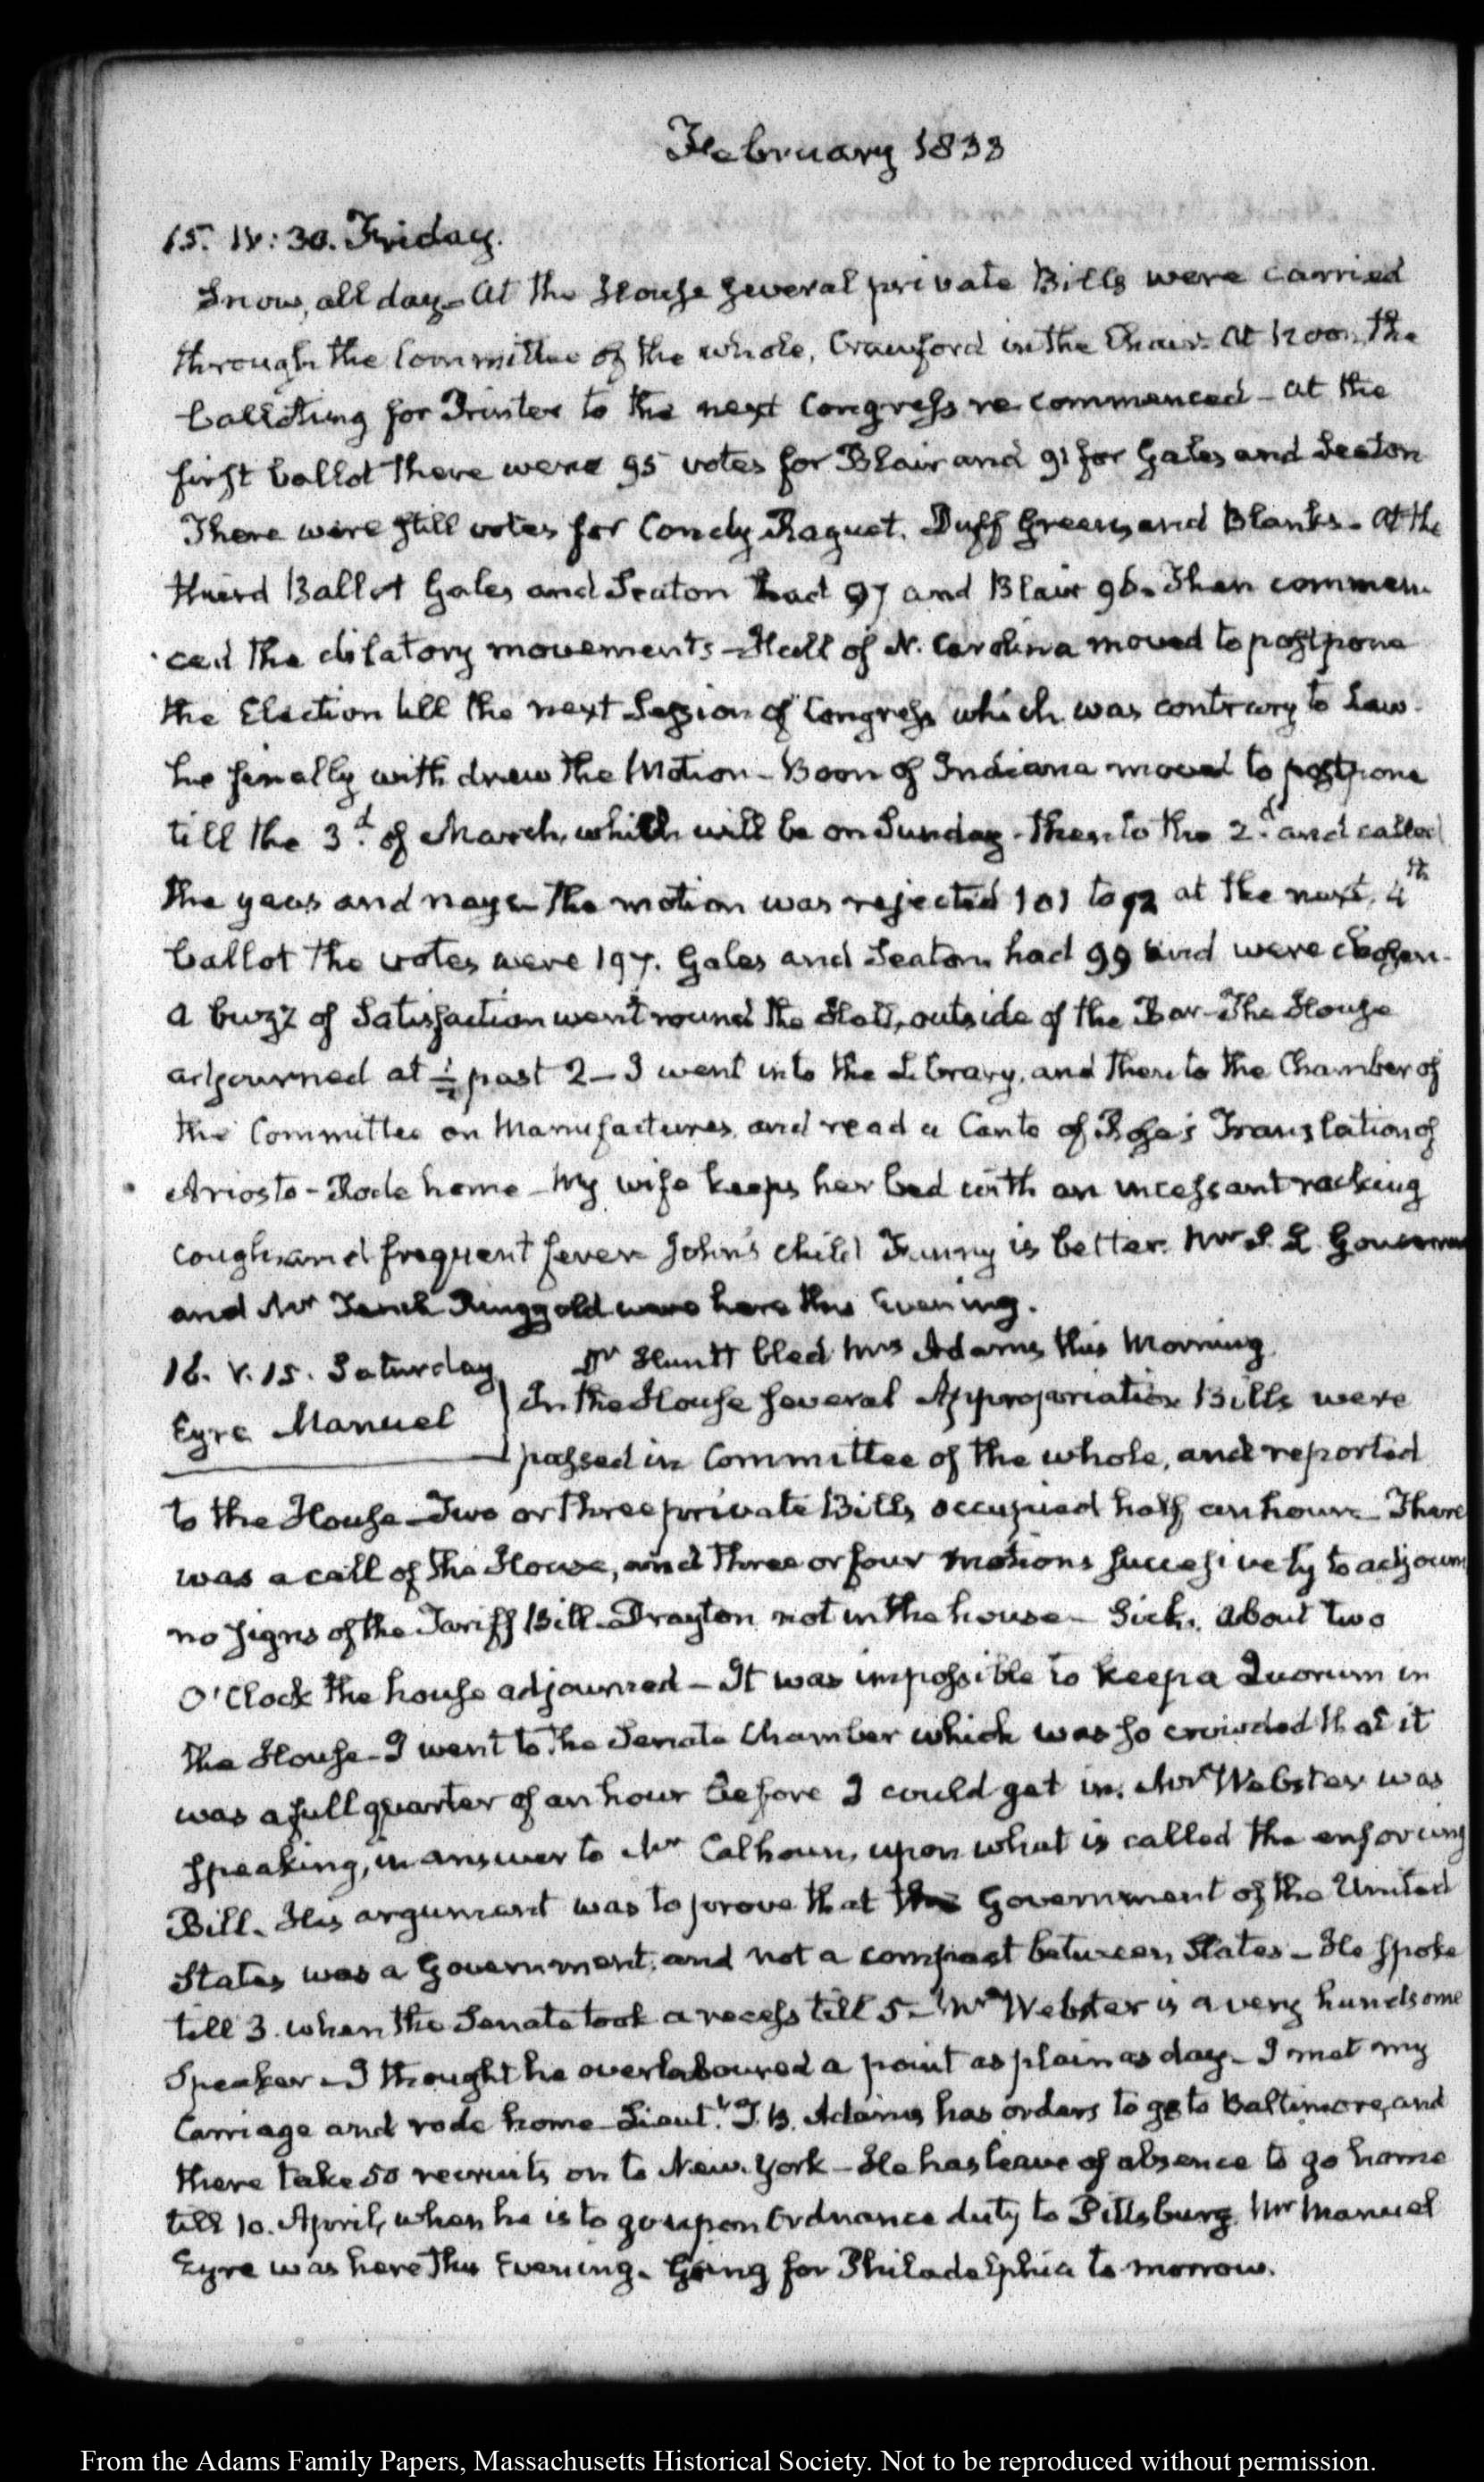 February 1833
15. IV:30. Friday.
Snow, all day. At the House several private Bills were carried
through the Committee of the whole, Crawford in the Chair. At noon, the
balloting for Printer to the next Congress re commenced – at the
first ballot there were 95 votes for Blair and 91 for Gales and Seaton
There were still votes for Condy Raguet. Duff Green, and Blanks. At the
third Ballot Gales and Seaton had 97 and Blair 96. Then commen-
ced the dilatory movements – Hall of N. Carolina moved to postpone
the Election till the next Session of Congress which was contrary to Law.
he finally withdrew the Motion – Boon of Indiana moved to postpone
till the 3.d of March, which will be on Sunday – then to the 2.d and called
the yeas and nays – the motion was rejected 101 to 92 at the next, 4th
ballot the votes were 197. Gales and Seaton had 99 and were chosen.
a buzz of Satisfaction went round the Hall, outside of the Bar – The House
adjourned at ½ past 2 – I went into the Library, and then to the Chamber of
the Committee on Manufactures, and read a Canto of Rose's Translation of
Ariosto – Rode home – My wife keeps her bed with an incessant racking
cough, and frequent fever John's child Fanny is better. Mr S. L. Gouverneur
and Mr Tench Ringgold were here this Evening.
16. V.15. Saturday Dr Huntt bled Mrs Adams this Morning
Eyre Manuel In the House several Appropriation Bills were
passed in Committee of the whole, and reported
to the House – Two or three private Bills occupied half an hour – There
was a call of the House, and three or four motions successively to adjourn
no signs of the Tariff Bill – Drayton not in the house – Sick. About two
O'Clock the house adjourned – It was impossible to keep a Quorum in
the House – I went to the Senate Chamber which was so crowded that it
was a full quarter of an hour before I could get in. Mr Webster was
speaking, in answer to Mr Calhoun, upon what is called the enforcing
Bill. His argument was to prove that the Government of the United
States was a Government, and not a compact between States – He spoke
till 3. when the Senate took a recess till 5 – Mr Webster is a very handsome
Speaker – I thought he overlaboured a point as plain as day – I met my
Carriage and rode home – Lieut.t T. B. Adams has orders to go to Baltimore, and
there take 50 recruits on to New-York – He has leave of absence to go home
till 10. April, when he is to go upon Ordnance duty to Pittsburg. Mr Manuel
Eyre was here this Evening. Going for Philadelphia to morrow.
From the Adams Family Papers, Massachusetts Historical Society. Not to be reproduced without permission.